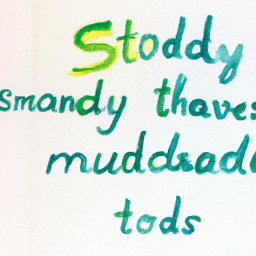 Stoddy
smandy thaves
tods